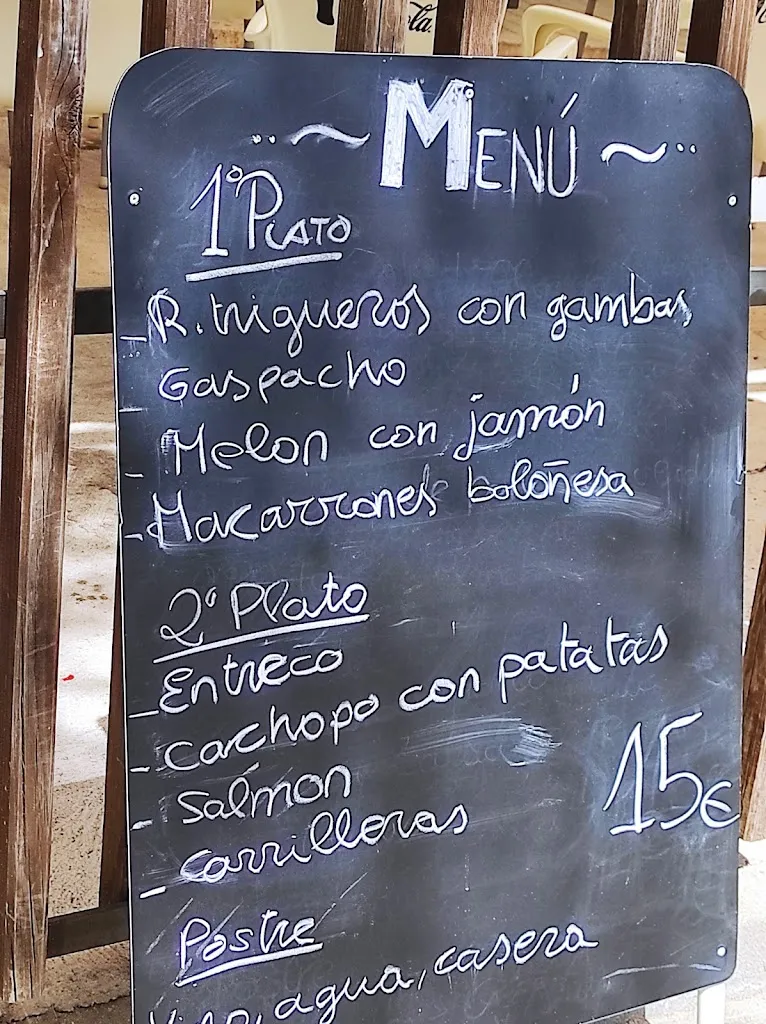 Menú
1º Plato
- R. trigueros con gambas
Gaspacho
- Melon con jamón
- Macarrones boloñesa
2º Plato
- Entreco
- Cachopo con patatas
- Salmon
- Carrilleras
15€
Postre
Vino, agua, casera